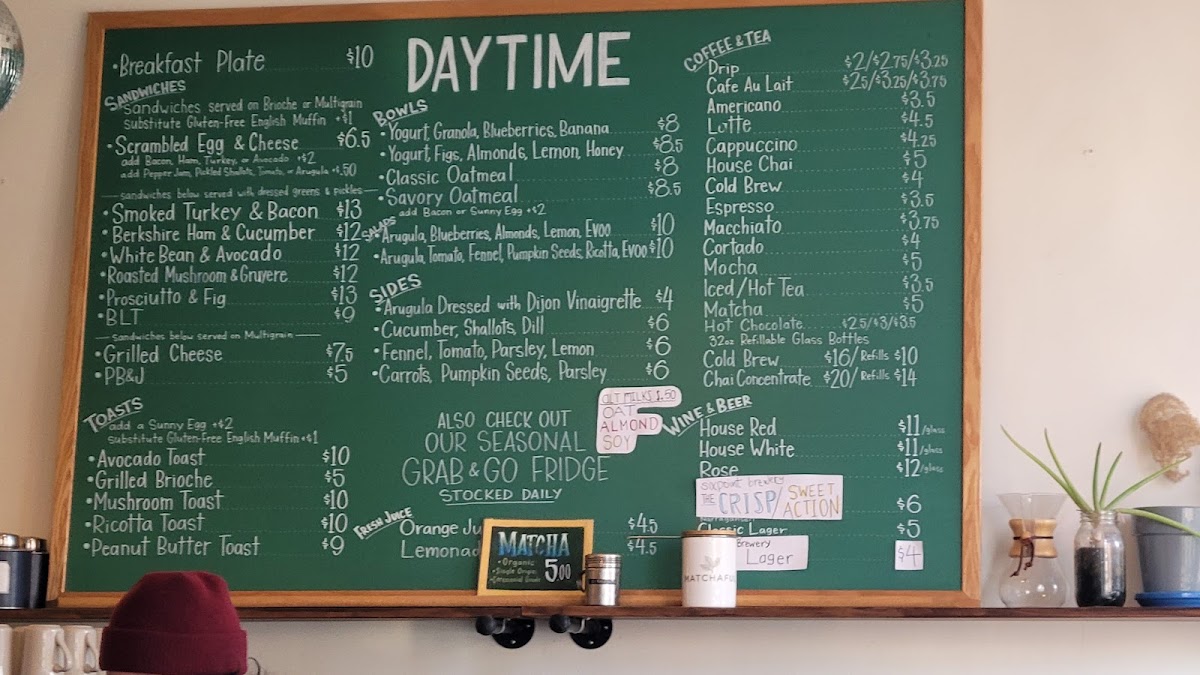 DAYTIME
•Breakfast Plate $10
SANDWICHES
Sandwiches served on Brioche or Multigrain
Substitute Gluten-Free English Muffin +$1
•Scrambled Egg & Cheese $6.5
add Bacon, Ham, Turkey, or Avocado +$2
add Pepper Jam, Pickled Shallots, Tomato, or Arugula +$.50
sandwiches below served with dressed greens & pickles
•Smoked Turkey & Bacon $13
•Berkshire Ham & Cucumber $12
•White Bean & Avocado $12
•Roasted Mushroom & Gruyere $12
•Prosciutto & Fig $13
•BLT $9
sandwiches below served on Multigrain
•Grilled Cheese $7.5
•PB&J $5
TOASTS
add a Sunny Egg +$2
Substitute Gluten-Free English Muffin +$1
•Avocado Toast $10
•Grilled Brioche $5
•Mushroom Toast $10
•Ricotta Toast $10
•Peanut Butter Toast $9
BOWLS
•Yogurt, Granola, Blueberries, Banana $8
•Yogurt, Figs, Almonds, Lemon, Honey $8.5
•Classic Oatmeal $8
•Savory Oatmeal $8.5
add Bacon or Sunny Egg +$2
SALADS
•Arugula, Blueberries, Almonds, Lemon, Evoo $10
•Arugula, Tomato, Fennel, Pumpkin Seeds, Ricotta, Evoo $10
SIDES
•Arugula Dressed with Dijon Vinaigrette $4
•Cucumber, Shallots, Dill $6
•Fennel, Tomato, Parsley, Lemon $6
•Carrots, Pumpkin Seeds, Parsley $6
ALSO CHECK OUT
OUR SEASONAL
GRAB & GO FRIDGE
STOCKED DAILY
ALT MILKS 1.50
OAT
ALMOND
SOY
FRESH JUICE
Orange Ju $4.5
Lemonad $4.5
MATCHA
•Organic
•Single Origin
•Ceremonial Grade
5.00
COFFEE & TEA
Drip $2/$2.75/$3.25
Cafe Au Lait $2.5/$3.25/$3.75
Americano $3.5
Latte $4.5
Cappuccino $4.25
House Chai $5
Cold Brew $4
Espresso $3.5
Macchiato $3.75
Cortado $4
Mocha $5
Iced/Hot Tea $3.5
Matcha $5
Hot Chocolate $2.5/$3/$3.5
32oz Refillable Glass Bottles
Cold Brew $16/Refills $10
Chai Concentrate $20/Refills $14
WINE & BEER
House Red $11/glass
House White $11/glass
Rose $12/glass
sixpoint brewery
THE CRISP/SWEET ACTION $6
Classic Lager $5
Brewery
Lager $4
MATCHAFUL